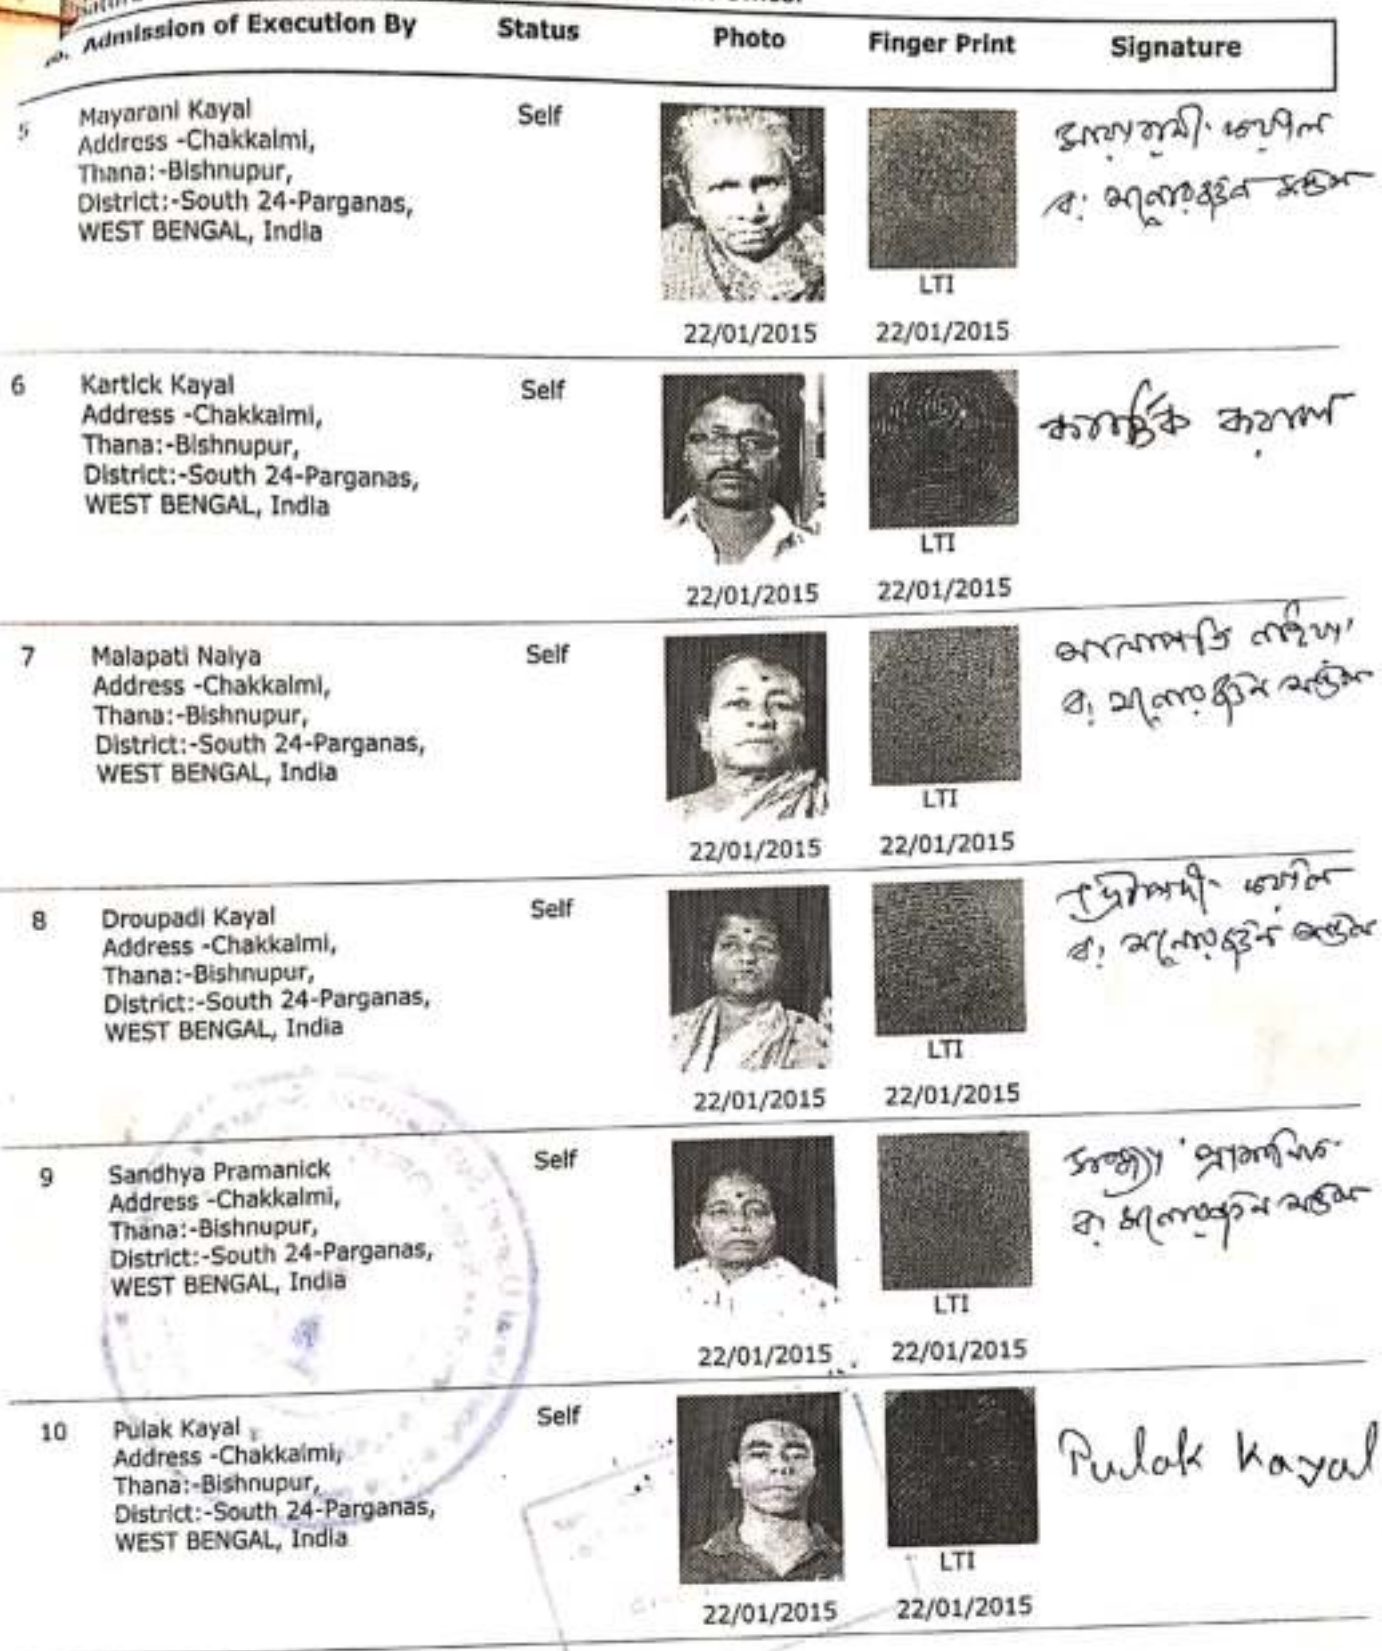 Admission of Execution By Status Photo Finger Print Signature
5 Mayarani Kayal Self
Address -Chakkalmi,
Thana:-Bishnupur,
District:-South 24-Parganas,
WEST BENGAL, India
LTI
22/01/2015 22/01/2015
মায়ারানী কয়াল
ব: মনোরঞ্জন মন্ডল
6 Kartick Kayal Self
Address -Chakkalmi,
Thana:-Bishnupur,
District:-South 24-Parganas,
WEST BENGAL, India
LTI
22/01/2015 22/01/2015
কার্ত্তিক কয়াল
7 Malapati Naiya Self
Address -Chakkalmi,
Thana:-Bishnupur,
District:-South 24-Parganas,
WEST BENGAL, India
LTI
22/01/2015 22/01/2015
মালাপতি নাইয়া
ব: মনোরঞ্জন মন্ডল
8 Droupadi Kayal Self
Address -Chakkalmi,
Thana:-Bishnupur,
District:-South 24-Parganas,
WEST BENGAL, India
LTI
22/01/2015 22/01/2015
দ্রৌপদী কয়াল
ব: মনোরঞ্জন মন্ডল
9 Sandhya Pramanick Self
Address -Chakkalmi,
Thana:-Bishnupur,
District:-South 24-Parganas,
WEST BENGAL, India
LTI
22/01/2015 22/01/2015
সন্ধ্যা প্রামানিক
ব: মনোরঞ্জন মন্ডল
10 Pulak Kayal Self
Address -Chakkalmi,
Thana:-Bishnupur,
District:-South 24-Parganas,
WEST BENGAL, India
LTI
22/01/2015 22/01/2015
Pulak Kayal